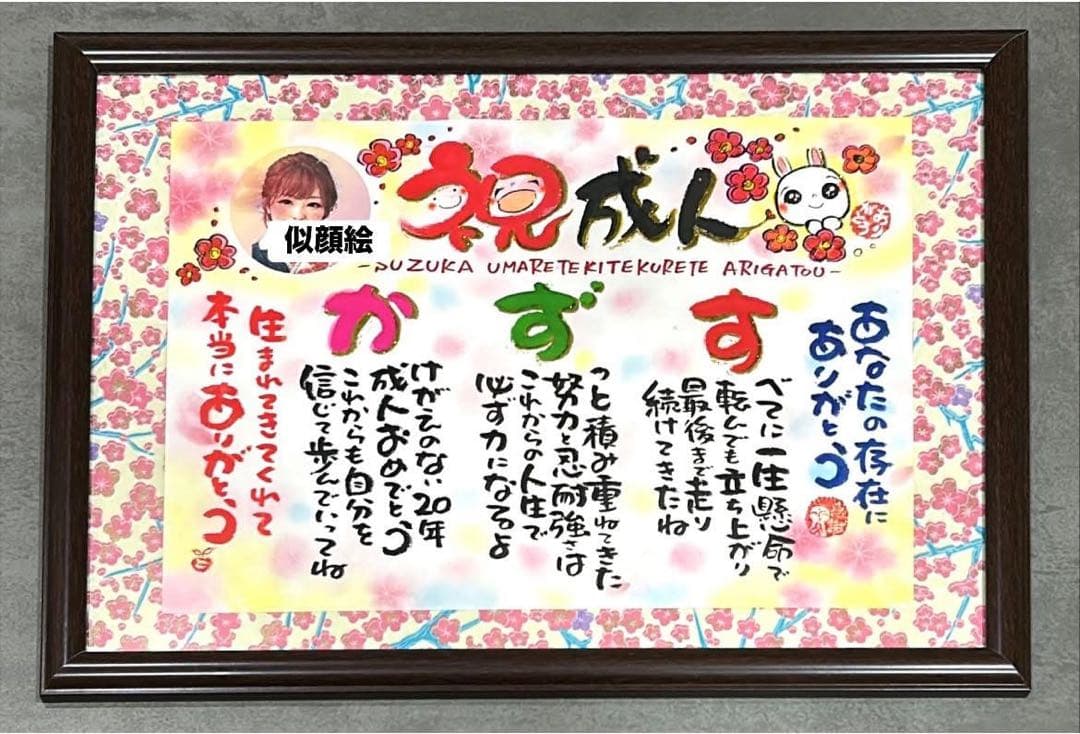 祝成人
似顔絵
-SUZUKA UMARETEKITEKURETE ARIGATOU-
あなたの存在に
ありがとう
す
べてに一生懸命で
転んでも立ち上がり
最後まで走り
続けてきたね
ず
っと積み重ねてきた
努力と忍耐強さは
これからの人生で
必ず力になるよ
か
けがえのない20年
成人おめでとう
これからも自分を
信じて歩んでいってね
生まれてきてくれて
本当にありがとう